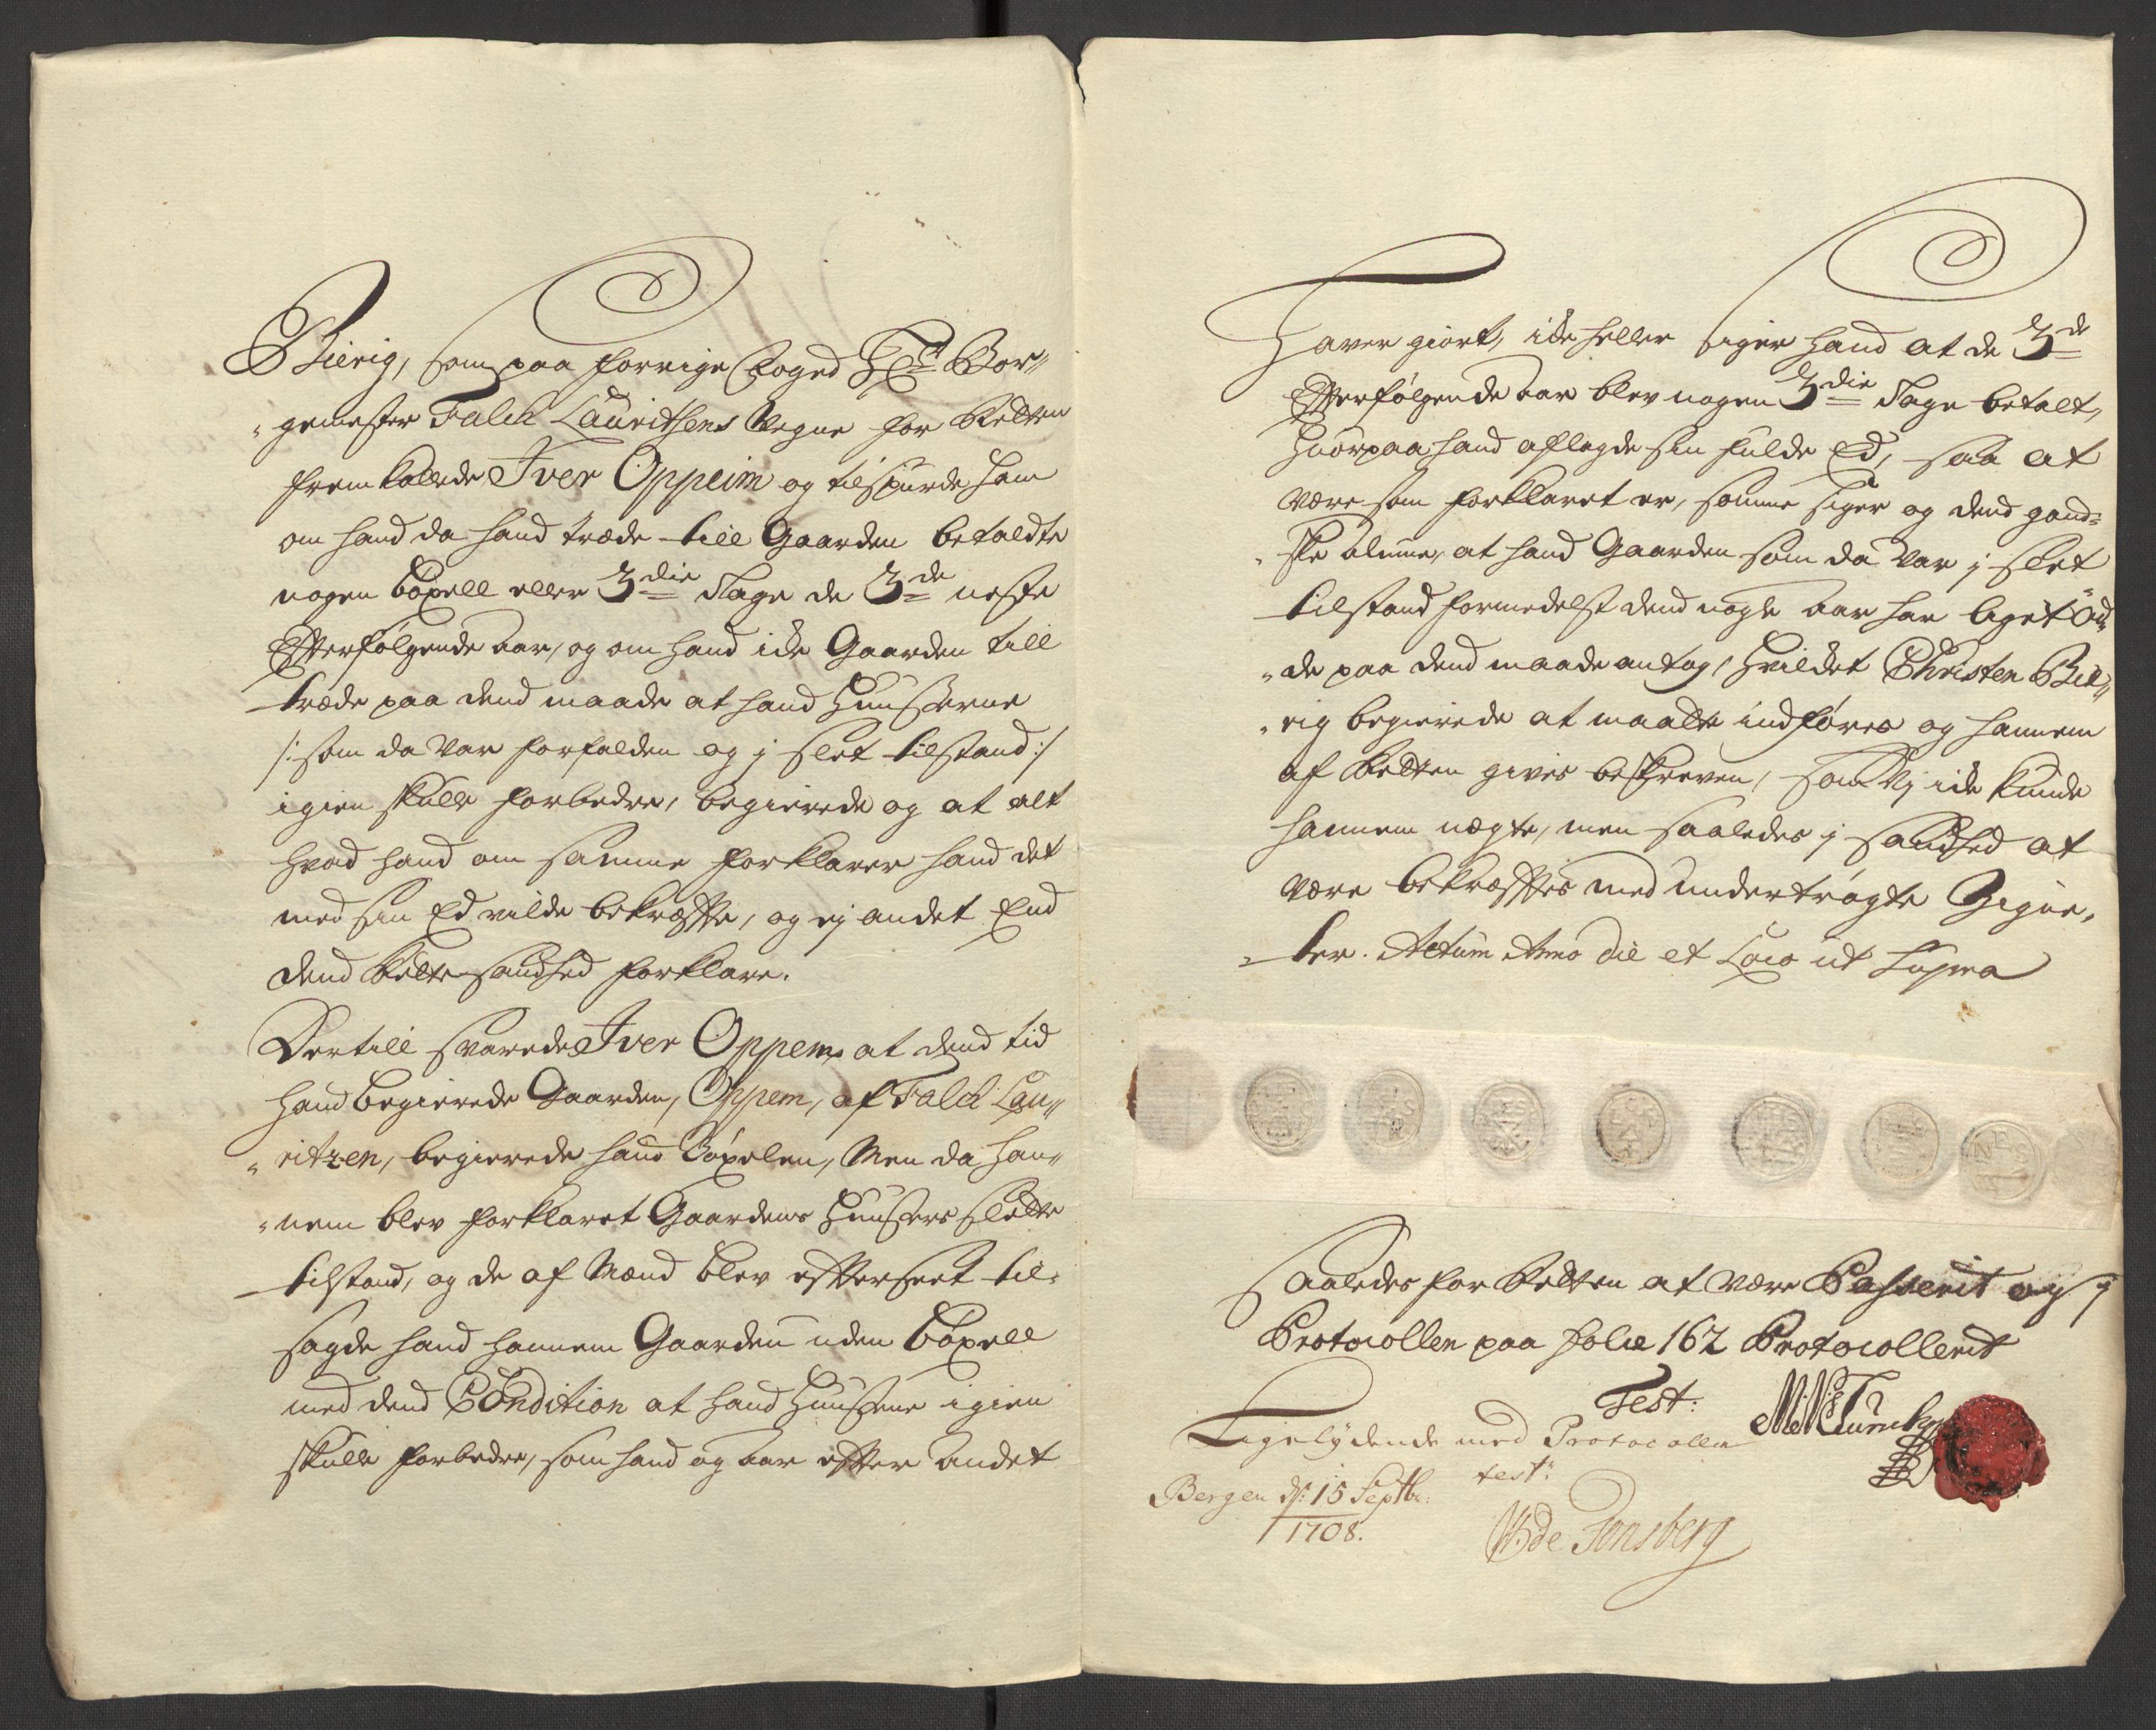 Bierig, som paa forrige Foged Hr Bor„
„gemester Falch Lauritsens Vegne for Retten
fremkalede Iver Oppeim og tilspurde ham
om hand da hand træde till Gaarden betaldte
nogen böxell eller 3die Tage de 3de neste
Efterfølgende aar, og om hand icke Gaarden till
træde paa dend maade at hand Huusserne
/: som da var forfalden og j slet tilstand :/
igien skulle forbedre, begierede og at alt
hvad hand om samme forklarer hand det
med sin Ed vilde bekræfte, og ej andet End
dend Rette sandhed forklare.
Dertill svarede Iver Oppem, at dend tid
hand begierede Gaarden, Oppem, af Falch Lau„
„ritzen, begierede hand Böxelen, Men da han„
„nem blev forklaret Gaardens Huussers slette
tilstand, og de af Mænd blev efterseet til„
sagde hand hannem Gaarden uden böxell
med dend Condition at hand Huussene igien
skulle forbedre, som hand og aar efter andet
Haver giort, icke heller siger hand at de 3de
Efterfølgende aar blev nogen 3die Tage betalt,
Huorpaa hand aflagde sin fulde Ed, saa at
være som forklaret er, samme siger og dend gand„
„ske almue, at hand Gaarden som da var j slet
tilstand formedelst dend nogle aar har liget Öd„
„de paa dend maade antog, hvilcket Christen Bie„
„rig begierede at maatte indføres og hannem
af Retten gives beskreven, som Vj icke kunde
hannem nægte, men saaledes j sandhed at
være bekræftes med undertrögte Signe„
„ter. Actum Anno die et Loco ut supra
NES
Saaledes for Retten at være Passerit og j
Protocollen paa folie 162 Protocollerit
Test:
Ligelydende med Protocollen
test:
Bergen d: 15 Septbr:
1708.
de Tonsberg